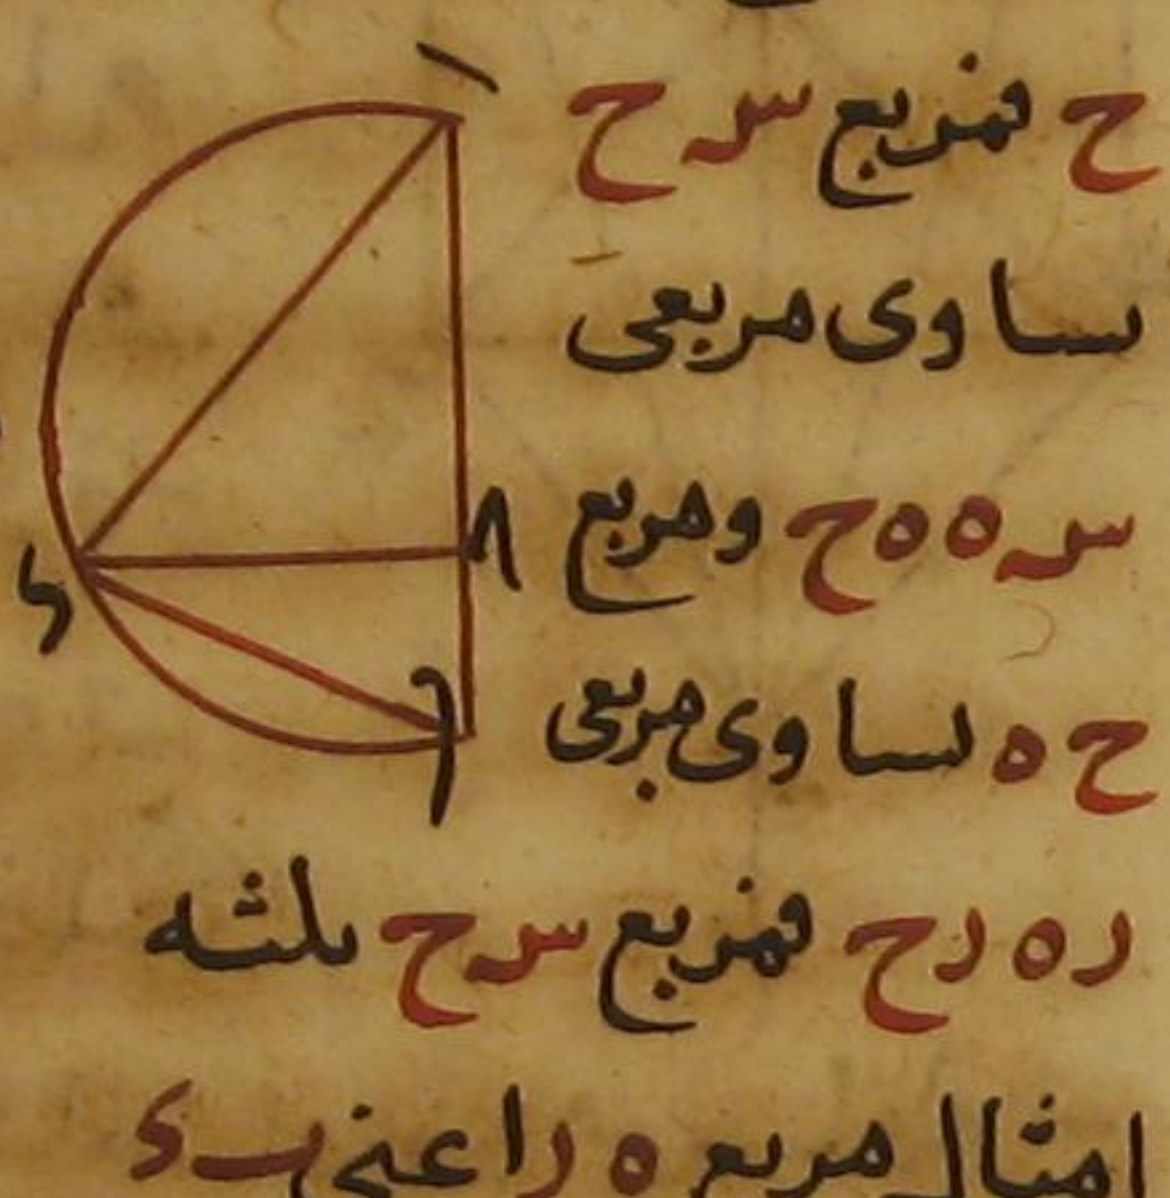 ح فمربع سه ح
ساوى مربعى
سه ه ه ح ومربع
ح ه لساوى مربعى
ر ه ر ح فمربع سه ح ىلثه
امثال مربع ه ر اعنى ب ء
ا
ء